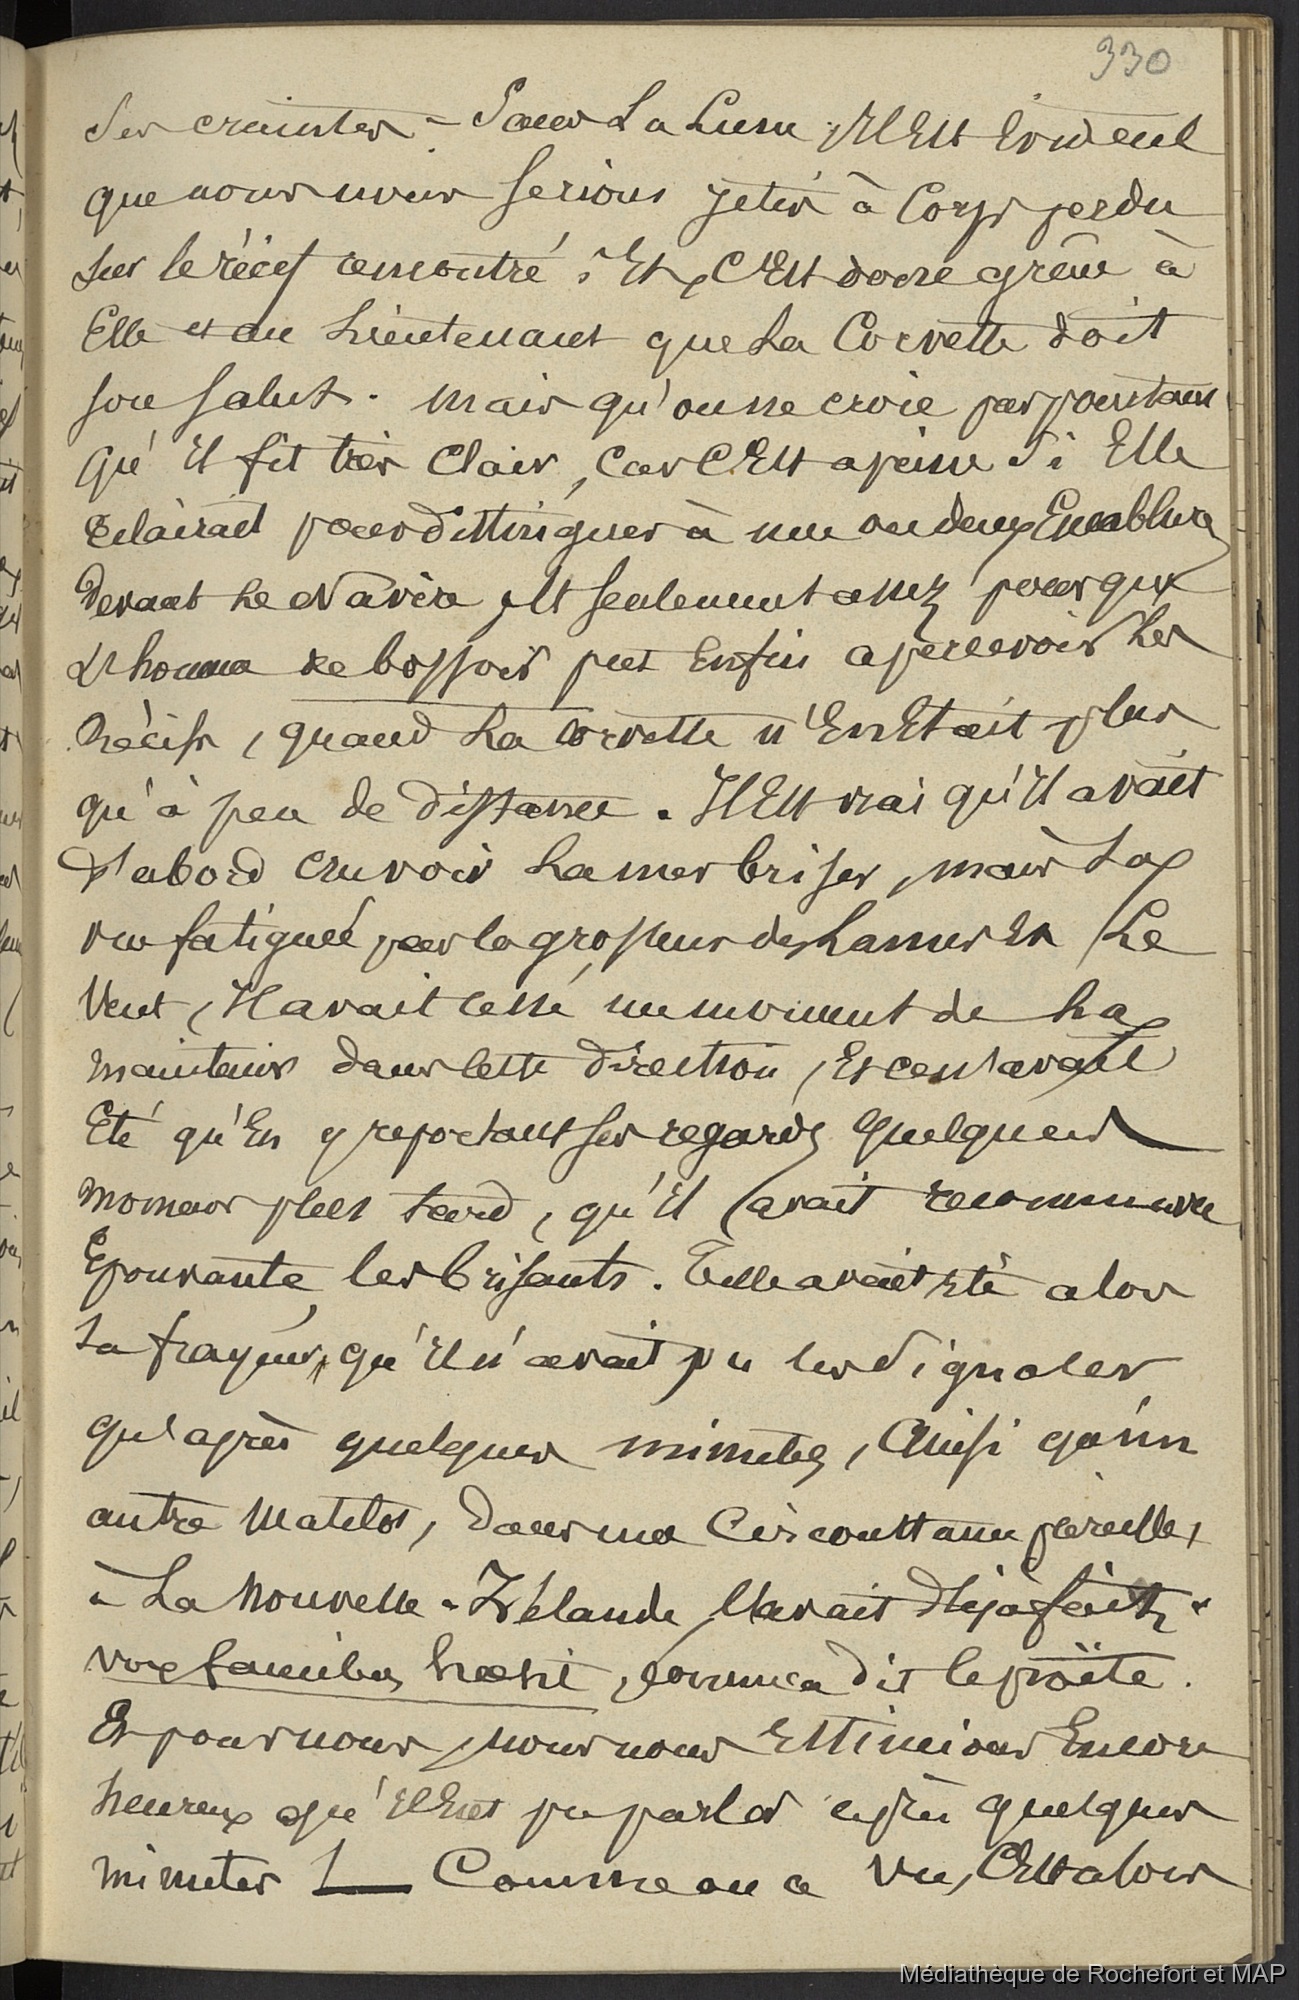 330
Ses craintes = Sans La Lune, Il Est Evident
que nous nous serions jetés à Corps perdu
sur le récif rencontré ; Et, C'Est donc grâce à
Elle et au Lieutenant que La Corvette doit
son salut. Mais qu'on ne croie pas pourtant
qu'il fit très Clair, Car C'Est à peine Si Elle
Eclairait pour distinguer à une ou deux Encablures
Devant Le Navire, Et seulement assez pour que
L'homme de bossoir put Enfin apercevoir Les
Récifs, quand La Corvette n'En Etait plus
qu'à peu de distance. Il Est vrai qu'Il avait
D'abord Cru voir La mer briser, mais La
vue fatiguée par la grosseur des Lames Et Le
Vent, Il avait cessé un moment de La
maintenir dans cette direction, Et ce n'avait
Eté qu'En y reportant ses regards quelques
momens plus tard, qu'Il avait reconnu avec
Epouvante les brisants. Telle avait été alors
Sa frayeur, qu'Il n'avait pu les Signaler
qu'après quelques minutes, Ainsi qu'un
autre Matelot, Dans une Circonstance pareille,
à La Nouvelle-Zélande, l'avait déjà fait.
vox faucibus haesit, comme a dit le poëte.
Et pour nous, nous nous Estimions Encore
heureux qu'Il Eut pu parler après quelques
minutes ! — Comme on a Vu, C'Est alors
Médiathèque de Rochefort et MAP